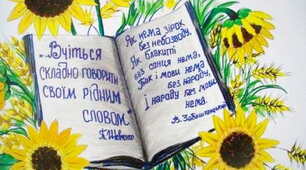 ...Вчіться
складно говорити
своїм рідним
словом
Як нема зірок
без небозводу,
Як блакиті
без сонця нема,
Так і мови нема
без народу,
І народу без мови
нема.